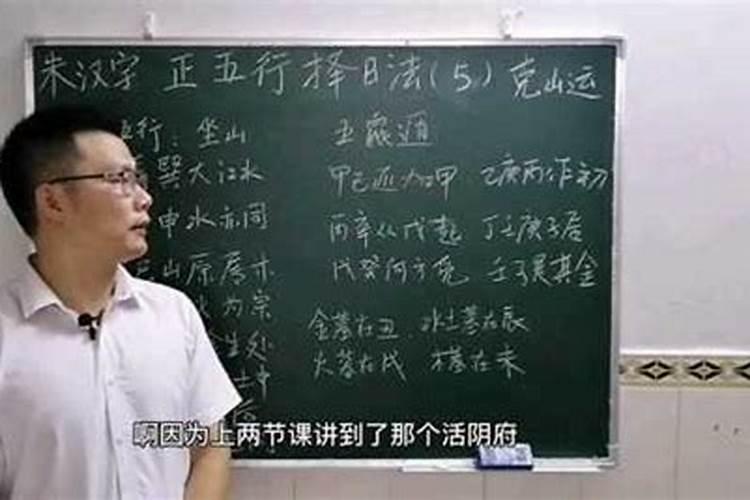 朱汉字 正五行择日法(5) 克山运
行:坐山 五鼠遁
巽大江水 甲己还加甲 乙庚丙作初
申水亦同 丙辛从戊起 丁壬庚子居
山原属木 戊癸何方觅 壬子是真金
为宗 金墓在丑 水土墓在辰
生处 火墓在戌 木墓在未
啊因为上两节课讲到了那个活阴府